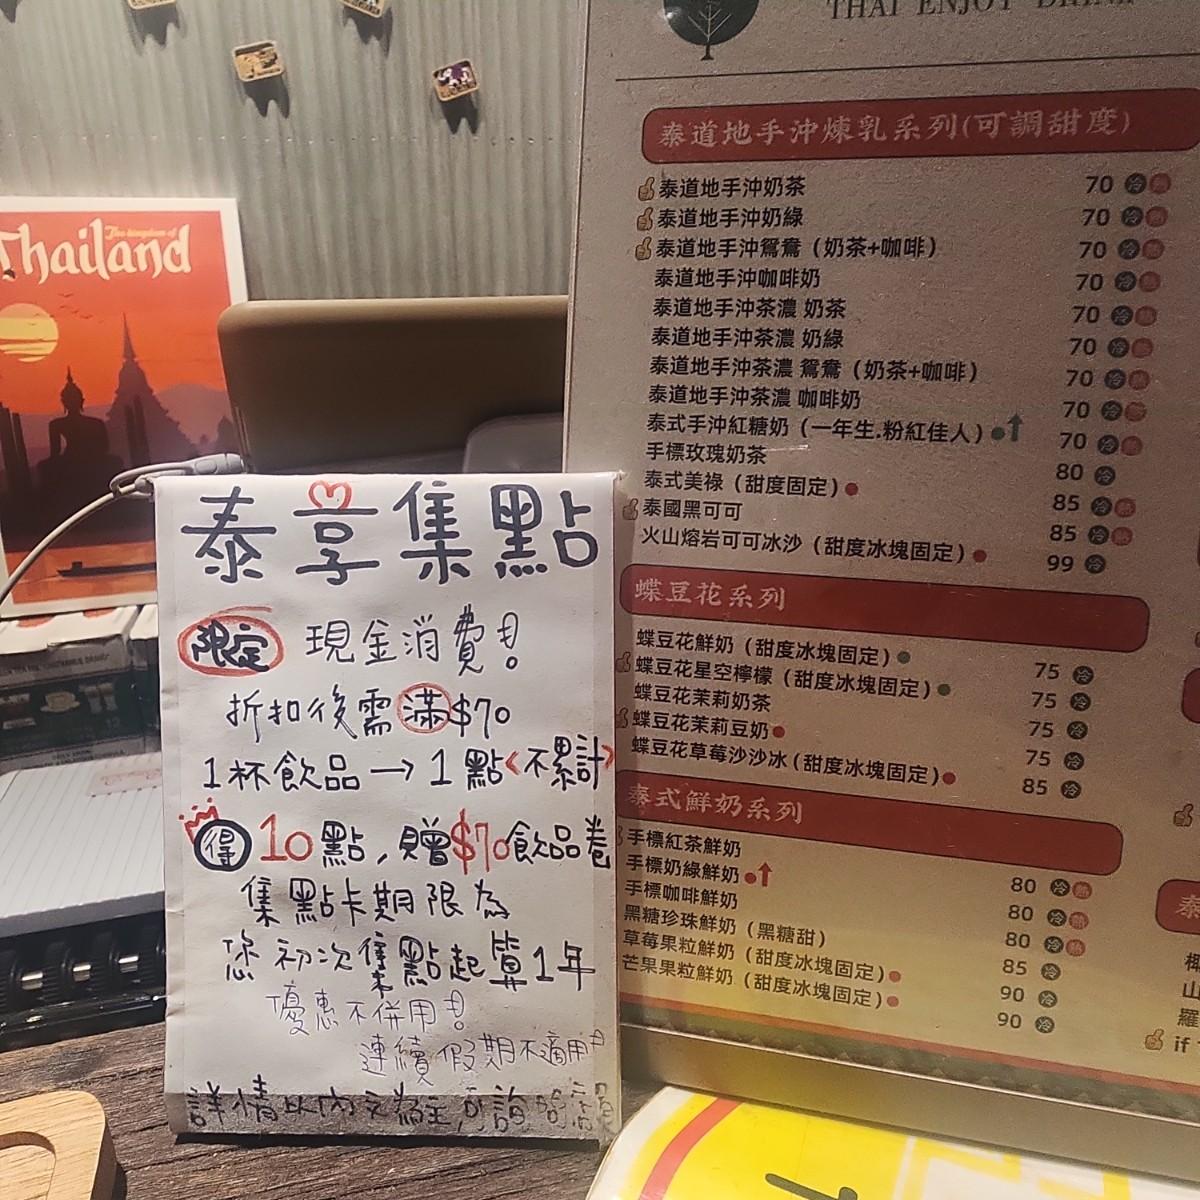 The kingdom of
Thailand
泰享集點
限定 現金消費!
折扣後需滿$70
1杯飲品→1點<不累計>
得 10點,贈$70飲品卷
集點卡期限為
您初次集點起算1年
優惠不併用!
連續假期不適用!
詳情以內文為主,可詢問
THAI ENJOY DRINK
泰道地手沖煉乳系列(可調甜度)
泰道地手沖奶茶 70 冷 熱
泰道地手沖奶綠 70 冷 熱
泰道地手沖鴛鴦(奶茶+咖啡) 70 冷 熱
泰道地手沖咖啡奶 70 冷 熱
泰道地手沖茶濃 奶茶 70 冷 熱
泰道地手沖茶濃 奶綠 70 冷 熱
泰道地手沖茶濃 鴛鴦(奶茶+咖啡) 70 冷 熱
泰道地手沖茶濃 咖啡奶 70 冷 熱
泰式手沖紅糖奶(一年生.粉紅佳人) 70 冷 熱
手標玫瑰奶茶 80 冷
泰式美祿(甜度固定) 85 冷 熱
泰國黑可可 85 冷 熱
火山熔岩可可冰沙(甜度冰塊固定) 99 冷
蝶豆花系列
蝶豆花鮮奶(甜度冰塊固定) 75 冷
蝶豆花星空檸檬(甜度冰塊固定) 75 冷
蝶豆花茉莉奶茶 75 冷
蝶豆花茉莉豆奶 75 冷
蝶豆花草莓沙沙冰(甜度冰塊固定) 85 冷
泰式鮮奶系列
手標紅茶鮮奶 80 冷 熱
手標奶綠鮮奶 80 冷 熱
手標咖啡鮮奶 80 冷 熱
黑糖珍珠鮮奶(黑糖甜) 85 冷
草莓果粒鮮奶(甜度冰塊固定) 90 冷
芒果果粒鮮奶(甜度冰塊固定) 90 冷
泰
椰
山
羅
if